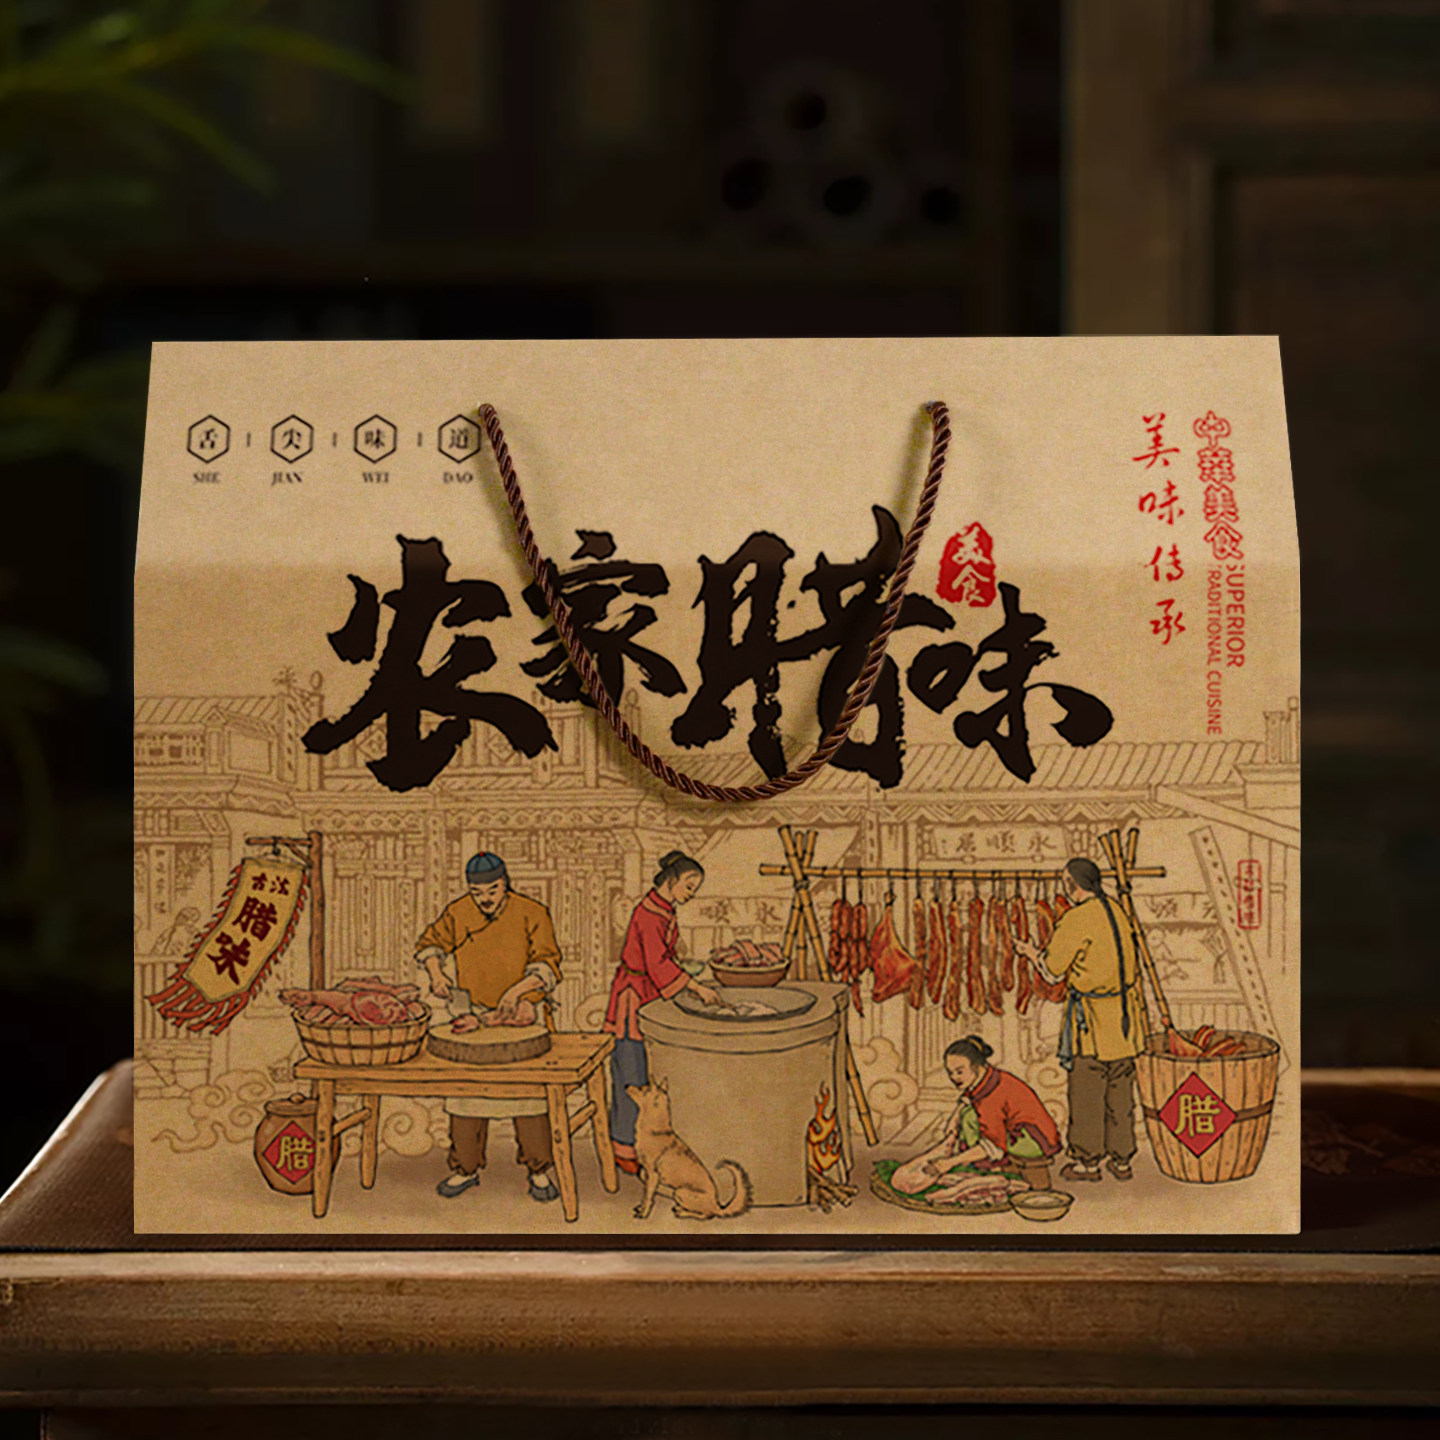 舌 尖 味 道
SHE JIAN WEI DAO
美味传承
中華美食
SUPERIOR
TRADITIONAL CUISINE
农家腊味
美食
古法
腊味
永順居
永順
腊
腊